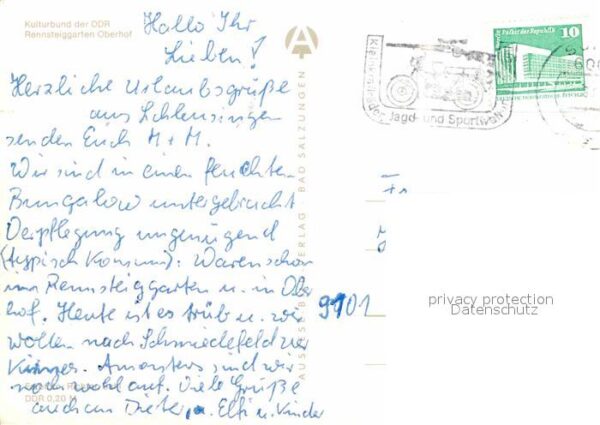 Kulturbund der DDR
Rennsteiggarten Oberhof
Hallo Ihr
Lieben!
Herzliche Urlaubsgrüße
aus Schleusingen
senden Euch M + M.
Wir sind in einem feuchten
Bungalow untergebracht
Verpflegung ungenügend
(typisch Konsum). Waren schon
im Rennsteiggarten u. in Ober
hof. Heute ist es trüb u. wir
wollen nach Schmiedefeld
Ansonsten sind wir
noch wohlauf. Viele Grüße
auch an Dieter, Elfi u. Kinder
DDR 0,20 M
VERLAG · BAD SALZUNGEN
Jagd- und Sportwaffen
Palast der Republik
10
9101
privacy protection
Datenschutz